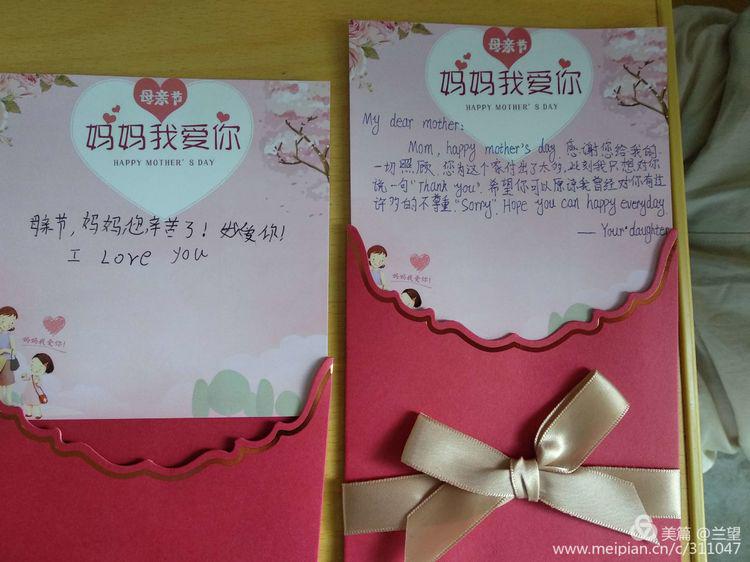 母亲节
妈妈我爱你
HAPPY MOTHER'S DAY
母亲节,妈妈您辛苦了!我爱你!
I Love you
妈妈我爱你!
母亲节
妈妈我爱你
HAPPY MOTHER'S DAY
My dear mother:
Mom, happy mother's day. 感谢您给我的
一切照顾,您为这个家付出了太多,此刻我只想对你
说一句"Thank you".希望你可以原谅我曾经对你有过
许多的不尊重."Sorry". Hope you can happy everyday.
—— Your daughter
妈妈我爱你!
美篇 @兰望
www.meipian.cn/c/311047